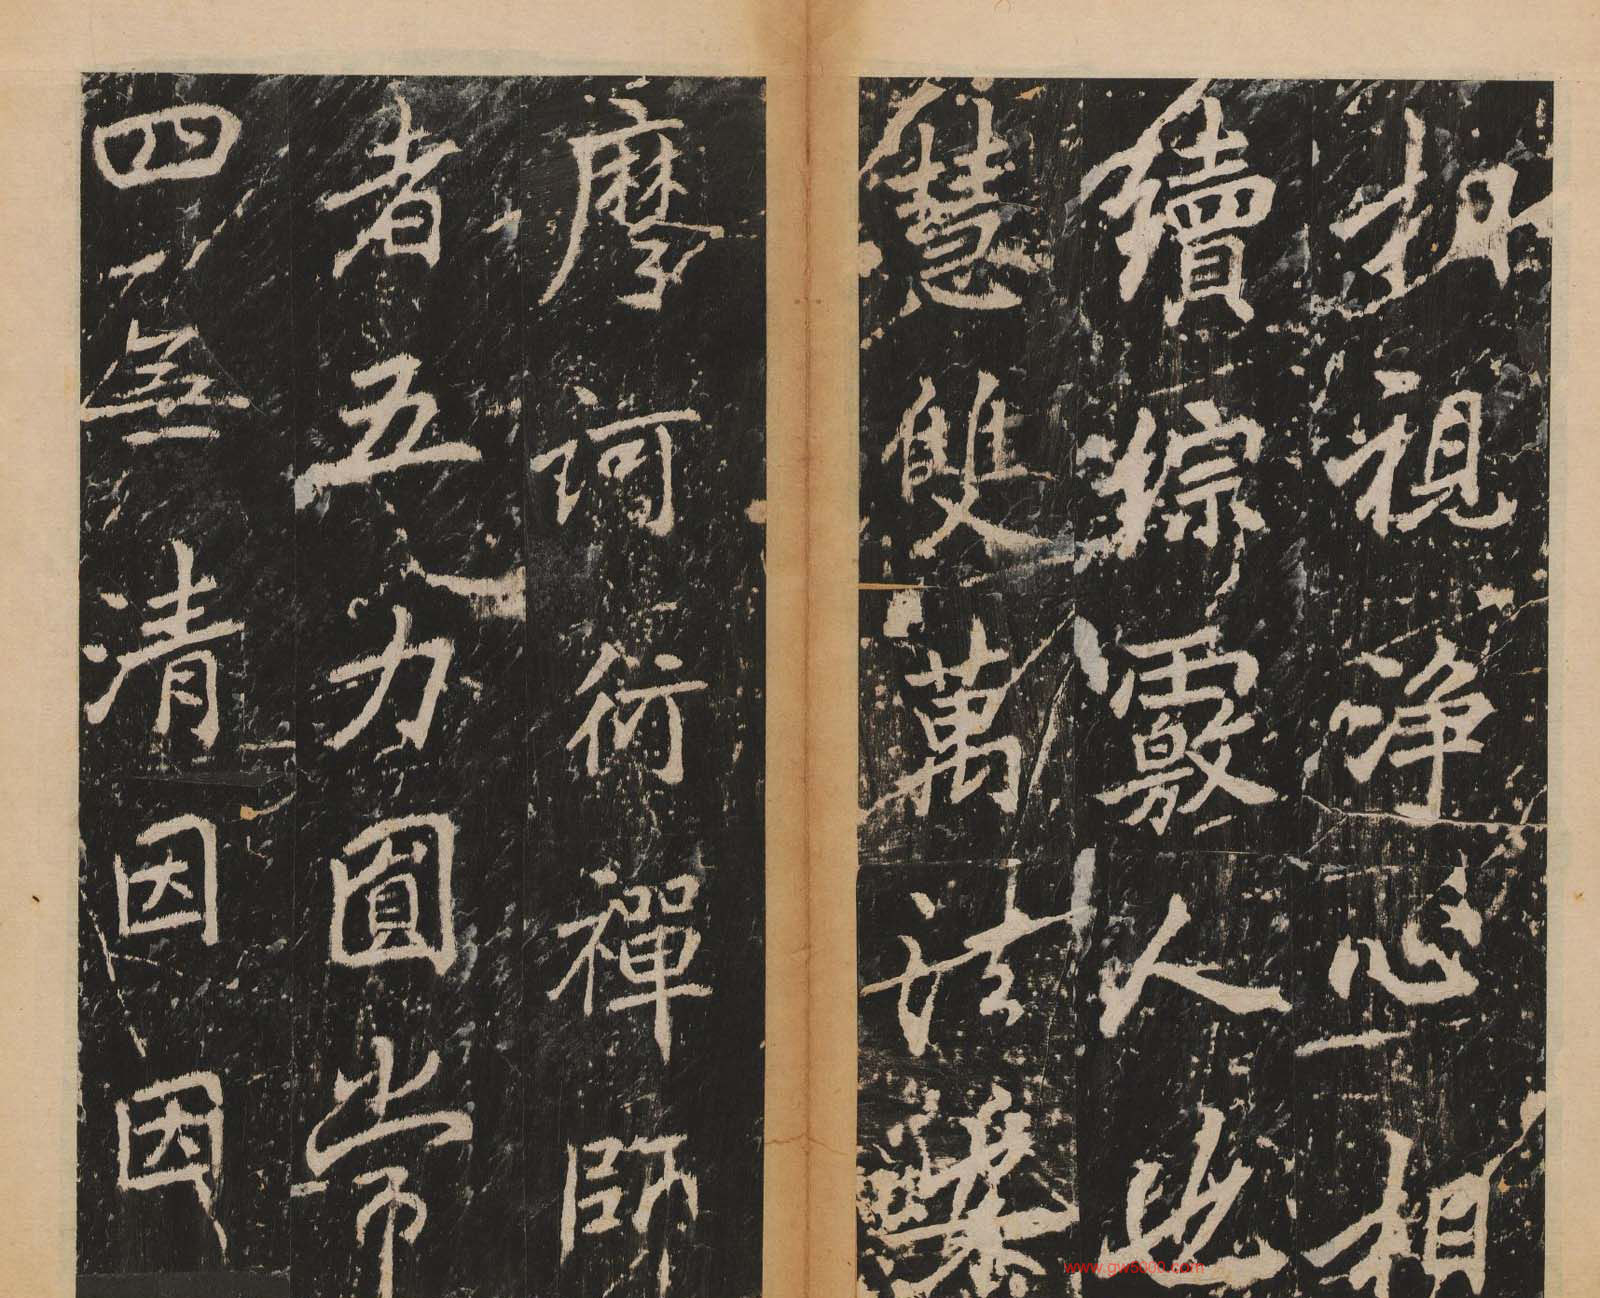 扣視浄心相
續綜覈人也
慧雙萬法樂
摩訶衍禪師
者五力圓常
四無清因因
www.gw5000.com